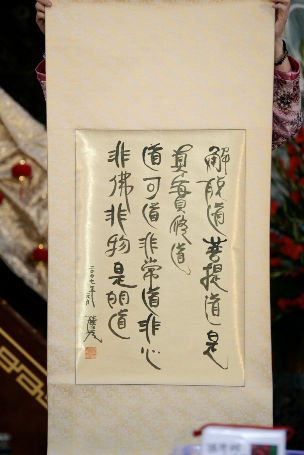 解脫道菩提道是
真實修道
道可道非常道非心
非佛非物是明道
二〇〇七年元月